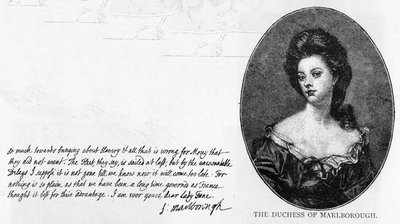 so much towards bringing about Slavery & all that is wrong for Mony that
they did not want. The Fleet, they say, is sailed at last, but by the unaccountable
Delays I suppose it is not gone till we know now it will come too late. For
nothing is so plain, as that we have been a long time governed as France
thought it best for their Advantage. I am ever yours, dear Lady Fane.
S. Marlborough
THE DUCHESS OF MARLBOROUGH.